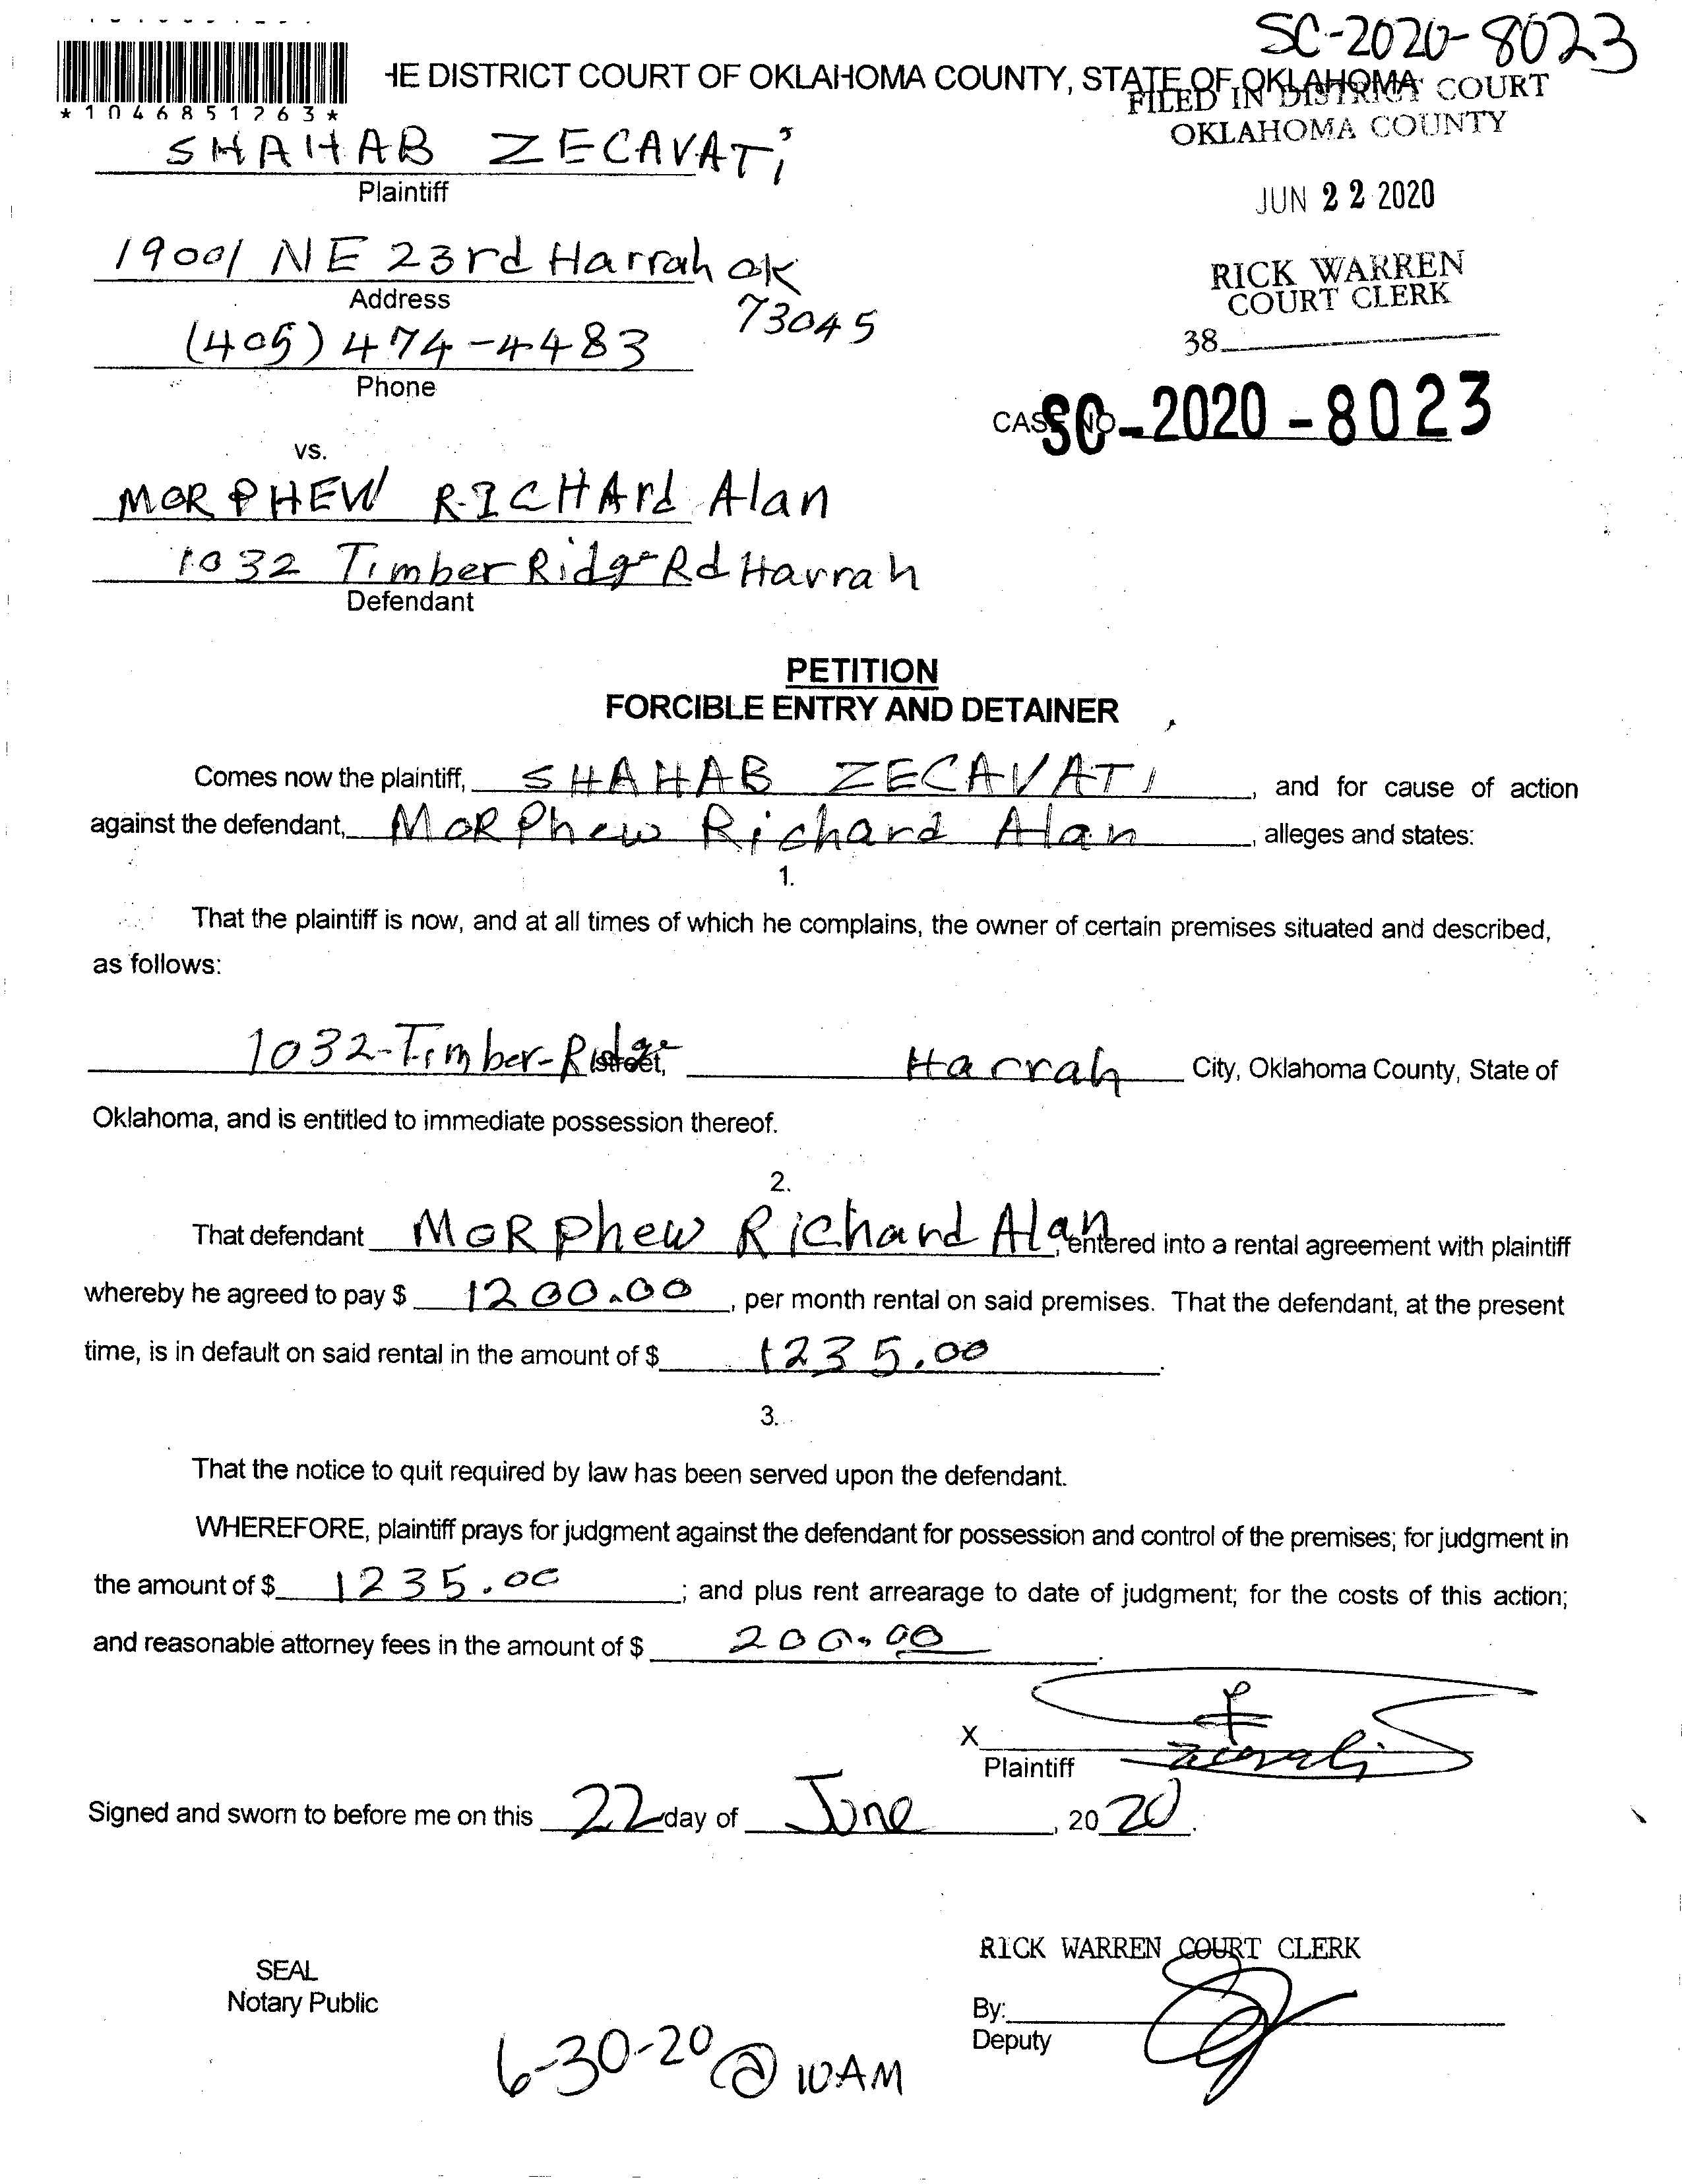 SC-2020-8023
HE DISTRICT COURT OF OKLAHOMA COUNTY, STATE OF OKLAHOMA
FILED IN DISTRICT COURT
OKLAHOMA COUNTY
*1046851263*
SHAHAB ZECAVATi
Plaintiff
JUN 22 2020
1900/ NE 23rd Harrah OK
73045
Address
RICK WARREN
COURT CLERK
38
(405) 474-4483
Phone
CASE NO
SC-2020-8023
vs.
MORPHEW RICHArd Alan
1032 Timber Ridge Rd Harrah
Defendant
PETITION
FORCIBLE ENTRY AND DETAINER
Comes now the plaintiff, SHAHAB ZECAVATI, and for cause of action
against the defendant, MORPhew Richard Alan, alleges and states:
1.
That the plaintiff is now, and at all times of which he complains, the owner of certain premises situated and described,
as follows:
1032-Timber-Ridge street, Harrah City, Oklahoma County, State of
Oklahoma, and is entitled to immediate possession thereof.
2.
That defendant MORPhew Richard Alan, entered into a rental agreement with plaintiff
whereby he agreed to pay $ 1200.00, per month rental on said premises. That the defendant, at the present
time, is in default on said rental in the amount of $ 1235.00.
3.
That the notice to quit required by law has been served upon the defendant.
WHEREFORE, plaintiff prays for judgment against the defendant for possession and control of the premises; for judgment in
the amount of $ 1235.00; and plus rent arrearage to date of judgment; for the costs of this action;
and reasonable attorney fees in the amount of $ 200.00.
X
Plaintiff
Signed and sworn to before me on this 22 day of June, 2020.
RICK WARREN COURT CLERK
SEAL
Notary Public
By:
Deputy
6-30-20 @ 10AM